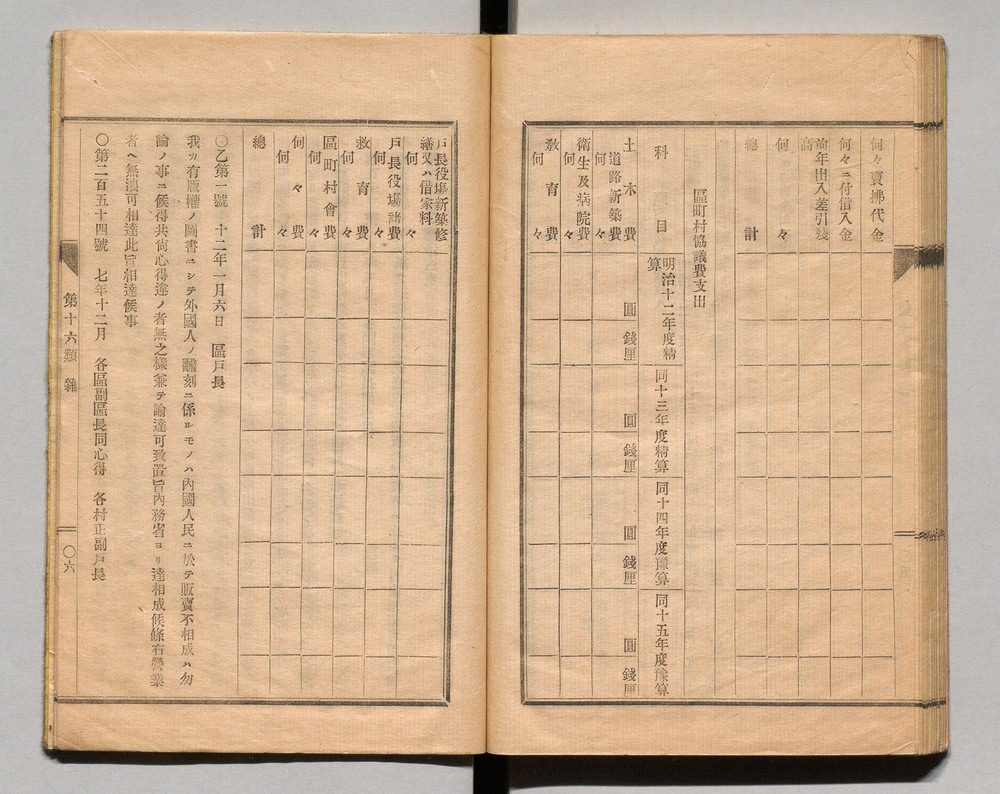 何々賣拂代金
何々ニ付借入金
前年出入差引殘高
何々
總計
區町村協議費支出
科目
明治十二年度精算
同十三年度精算
同十四年度豫算
同十五年度豫算
土木費
圓錢厘
圓錢厘
圓錢厘
圓錢厘
道路新築費
何々
衞生及病院費
何々
敎育費
何々
戶長役塲新築修繕又ハ借家料
何々
戶長役塲諸費
何々
救育費
何々
區町村會費
何々
何々費
何々
總計
〇乙第一號 十二年一月六日 區戶長
我カ有版權ノ圖書ニシテ外國人ノ飜刻ニ係ルモノハ內國人民ニ於テ販賣不相成ハ勿
論ノ事ニ候得共尙心得違ノ者無之樣兼テ諭達可致置旨內務省ヨリ達相成候條右營業
者ヘ無洩可相達此旨相達候事
〇第二百五十四號 七年十二月 各區副區長同心得 各村正副戶長
第十六類 雜
〇六